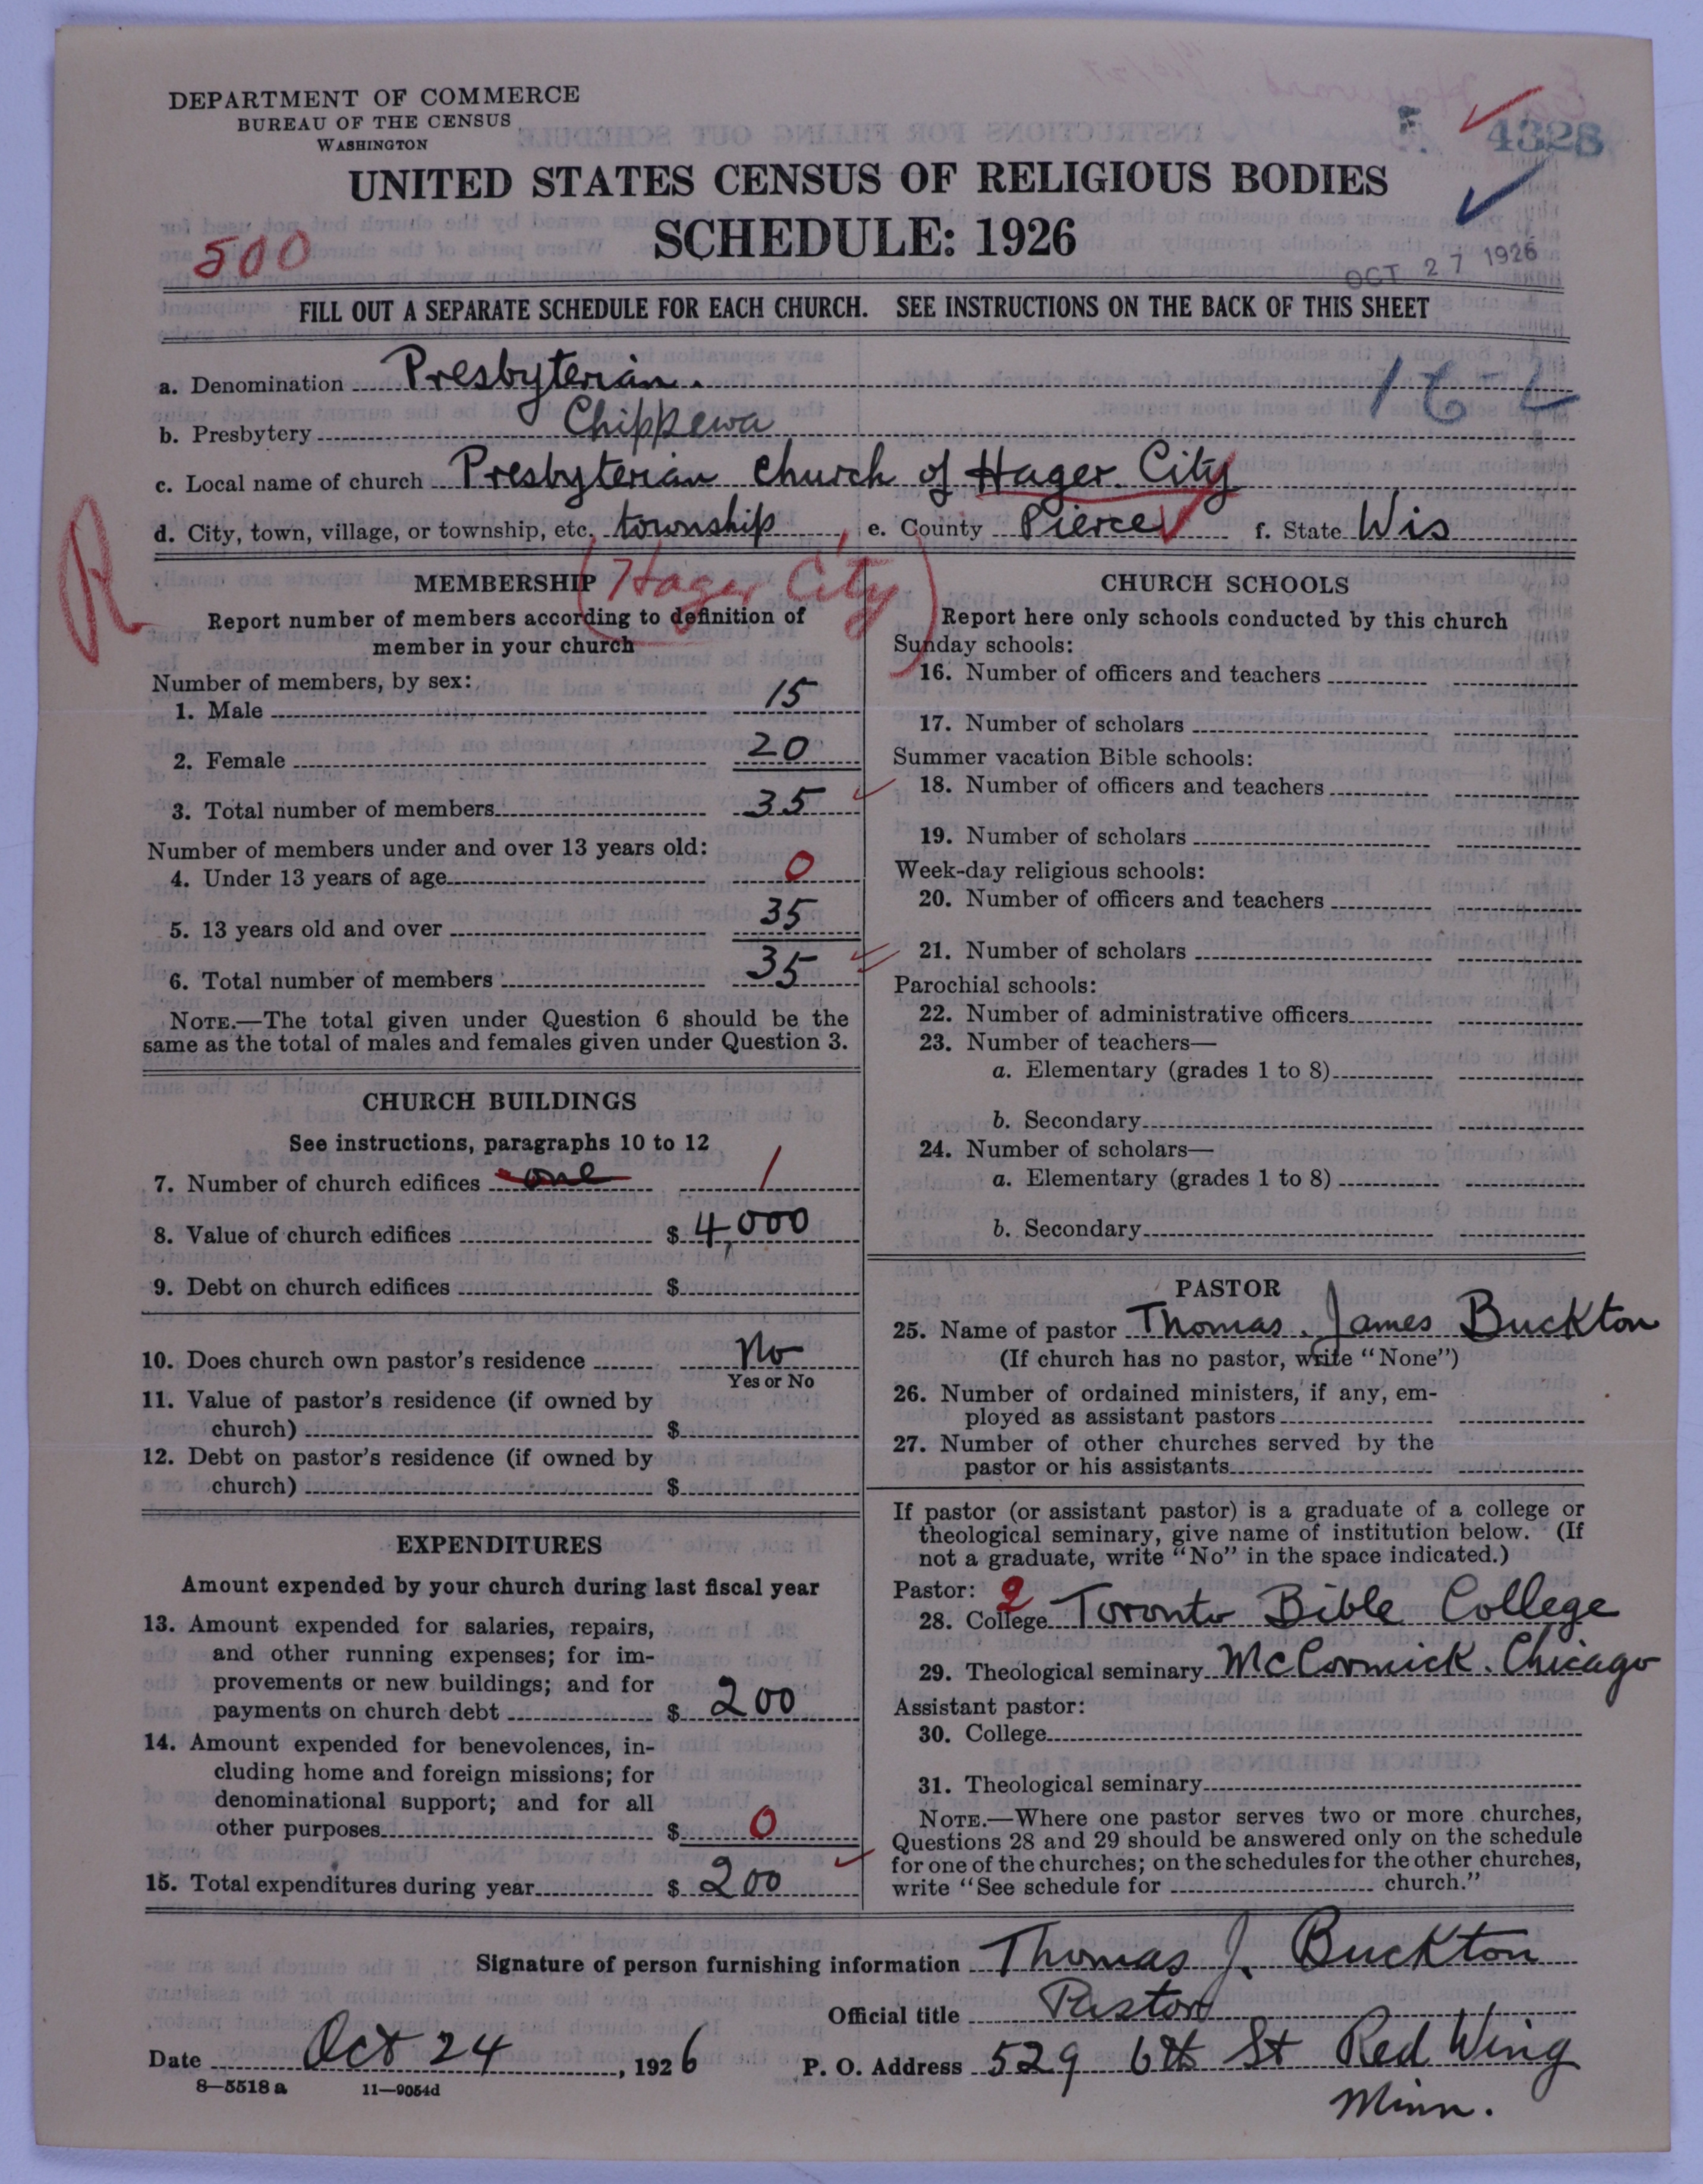 DEPARTMENT OF COMMERCE
BUREAU OF THE CENSUS
WASHINGTON
4328
UNITED STATES CENSUS OF RELIGIOUS BODIES
SCHEDULE: 1926
500
OCT 27 1926
FILL OUT A SEPARATE SCHEDULE FOR EACH CHURCH. SEE INSTRUCTIONS ON THE BACK OF THIS SHEET
a. Denomination Presbyterian.
b. Presbytery Chippewa
c. Local name of church Presbyterian Church of Hager City
d. City, town, village, or township, etc. township e. County Pierce f. State Wis
R
(Hager City)
MEMBERSHIP
Report number of members according to definition of
member in your church
Number of members, by sex:
1. Male 15
2. Female 20
3. Total number of members 35
Number of members under and over 13 years old:
4. Under 13 years of age 0
5. 13 years old and over 35
6. Total number of members 35
NOTE.—The total given under Question 6 should be the
same as the total of males and females given under Question 3.
CHURCH BUILDINGS
See instructions, paragraphs 10 to 12
7. Number of church edifices one 1
8. Value of church edifices $ 4,000
9. Debt on church edifices $
10. Does church own pastor's residence No
Yes or No
11. Value of pastor's residence (if owned by
church) $
12. Debt on pastor's residence (if owned by
church) $
EXPENDITURES
Amount expended by your church during last fiscal year
13. Amount expended for salaries, repairs,
and other running expenses; for im-
provements or new buildings; and for
payments on church debt $ 200
14. Amount expended for benevolences, in-
cluding home and foreign missions; for
denominational support; and for all
other purposes $ 0
15. Total expenditures during year $ 200
CHURCH SCHOOLS
Report here only schools conducted by this church
Sunday schools:
16. Number of officers and teachers
17. Number of scholars
Summer vacation Bible schools:
18. Number of officers and teachers
19. Number of scholars
Week-day religious schools:
20. Number of officers and teachers
21. Number of scholars
Parochial schools:
22. Number of administrative officers
23. Number of teachers—
a. Elementary (grades 1 to 8)
b. Secondary
24. Number of scholars—
a. Elementary (grades 1 to 8)
b. Secondary
PASTOR
25. Name of pastor Thomas. James Buckton
(If church has no pastor, write "None")
26. Number of ordained ministers, if any, em-
ployed as assistant pastors
27. Number of other churches served by the
pastor or his assistants
If pastor (or assistant pastor) is a graduate of a college or
theological seminary, give name of institution below. (If
not a graduate, write "No" in the space indicated.)
Pastor: 2
28. College Toronto Bible College
29. Theological seminary McCormick. Chicago
Assistant pastor:
30. College
31. Theological seminary
NOTE.—Where one pastor serves two or more churches,
Questions 28 and 29 should be answered only on the schedule
for one of the churches; on the schedules for the other churches,
write "See schedule for church."
Signature of person furnishing information Thomas J. Buckton
Official title Pastor
Date Oct 24, 1926 P. O. Address 529 6th St Red Wing
Minn.
8—5518 a 11—9054d